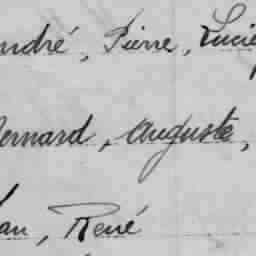 André, Pierre, Lucie
Bernard, Auguste,
Jean, René